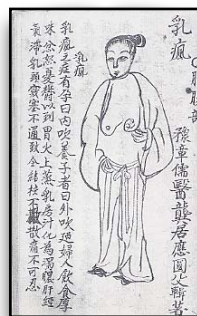 乳瘋
豫章儒醫龔居應圓父輯著
乳瘋
乳瘋之症有孕曰內吹養子者曰外吹廼婦人飲食厚
味忿怒憂鬱以到胃火上蒸乳房汁化為濁膿肝經
氣滯乳頭竅塞不通致令結核不散痛不可忍